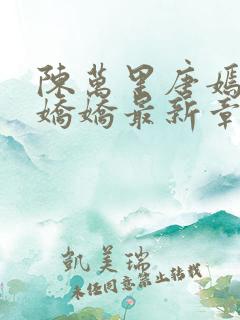 陳萬里唐嫣
嬌嬌最新章
凱美瑞
未經同意禁止轉載